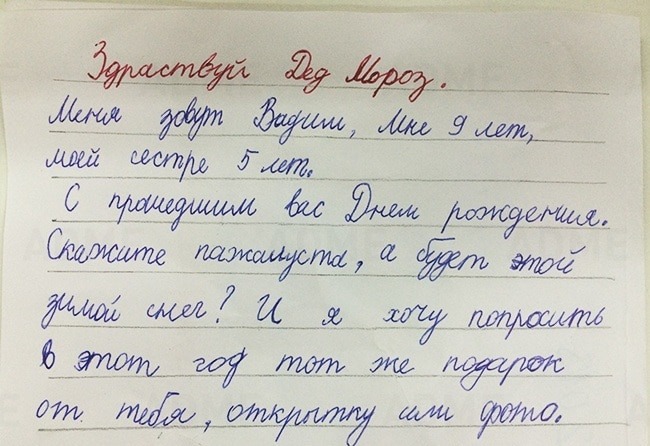 Здраствуй Дед Мороз.
Меня зовут Вадим, Мне 9 лет,
моей сестре 5 лет.
С прошедшим вас Днем рождения.
Скажите пажалуста, а будет этой
зимой снег? И я хочу попросить
в этот год тот же подарок
от тебя, открытку или фото.